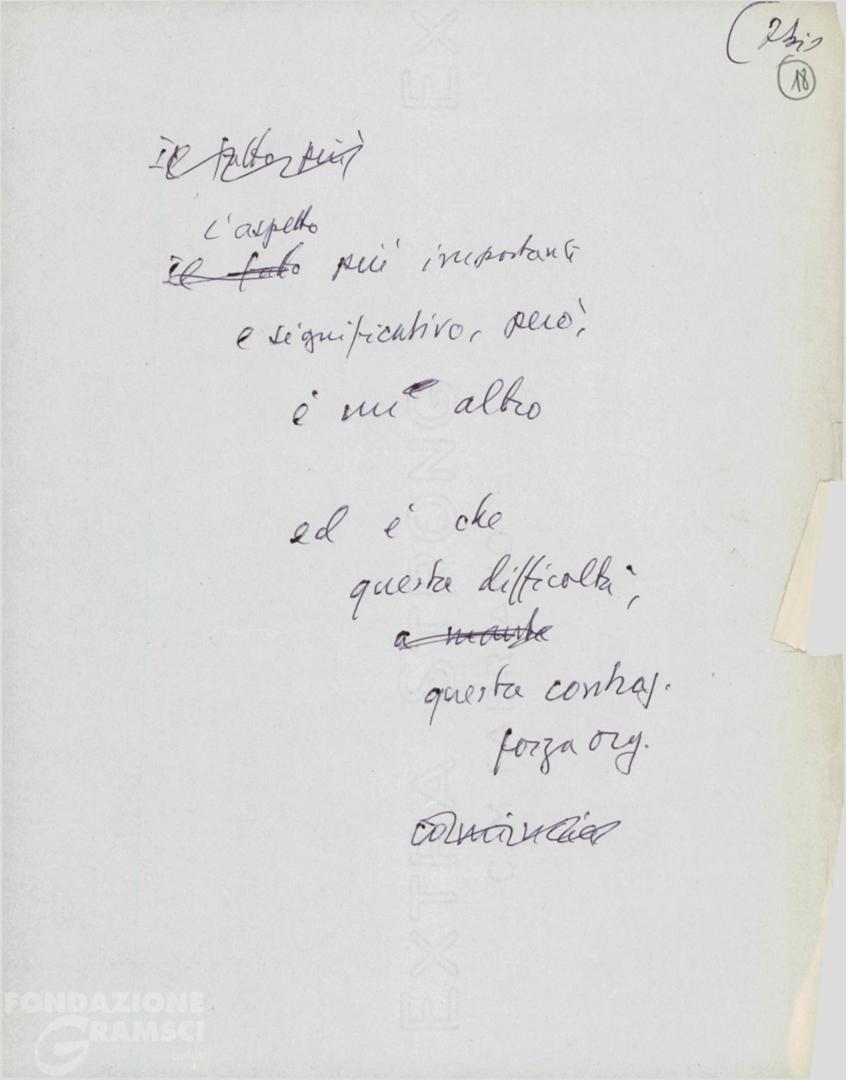 (7bis
18
Il fatto più
L'aspetto
Il fatto più importante
e significativo, però,
è un altro
ed è che
questa difficoltà,
questa contrag.
forza org.
comincia
EXTRA STRONG
EX
FONDAZIONE
GRAMSCI
onlus